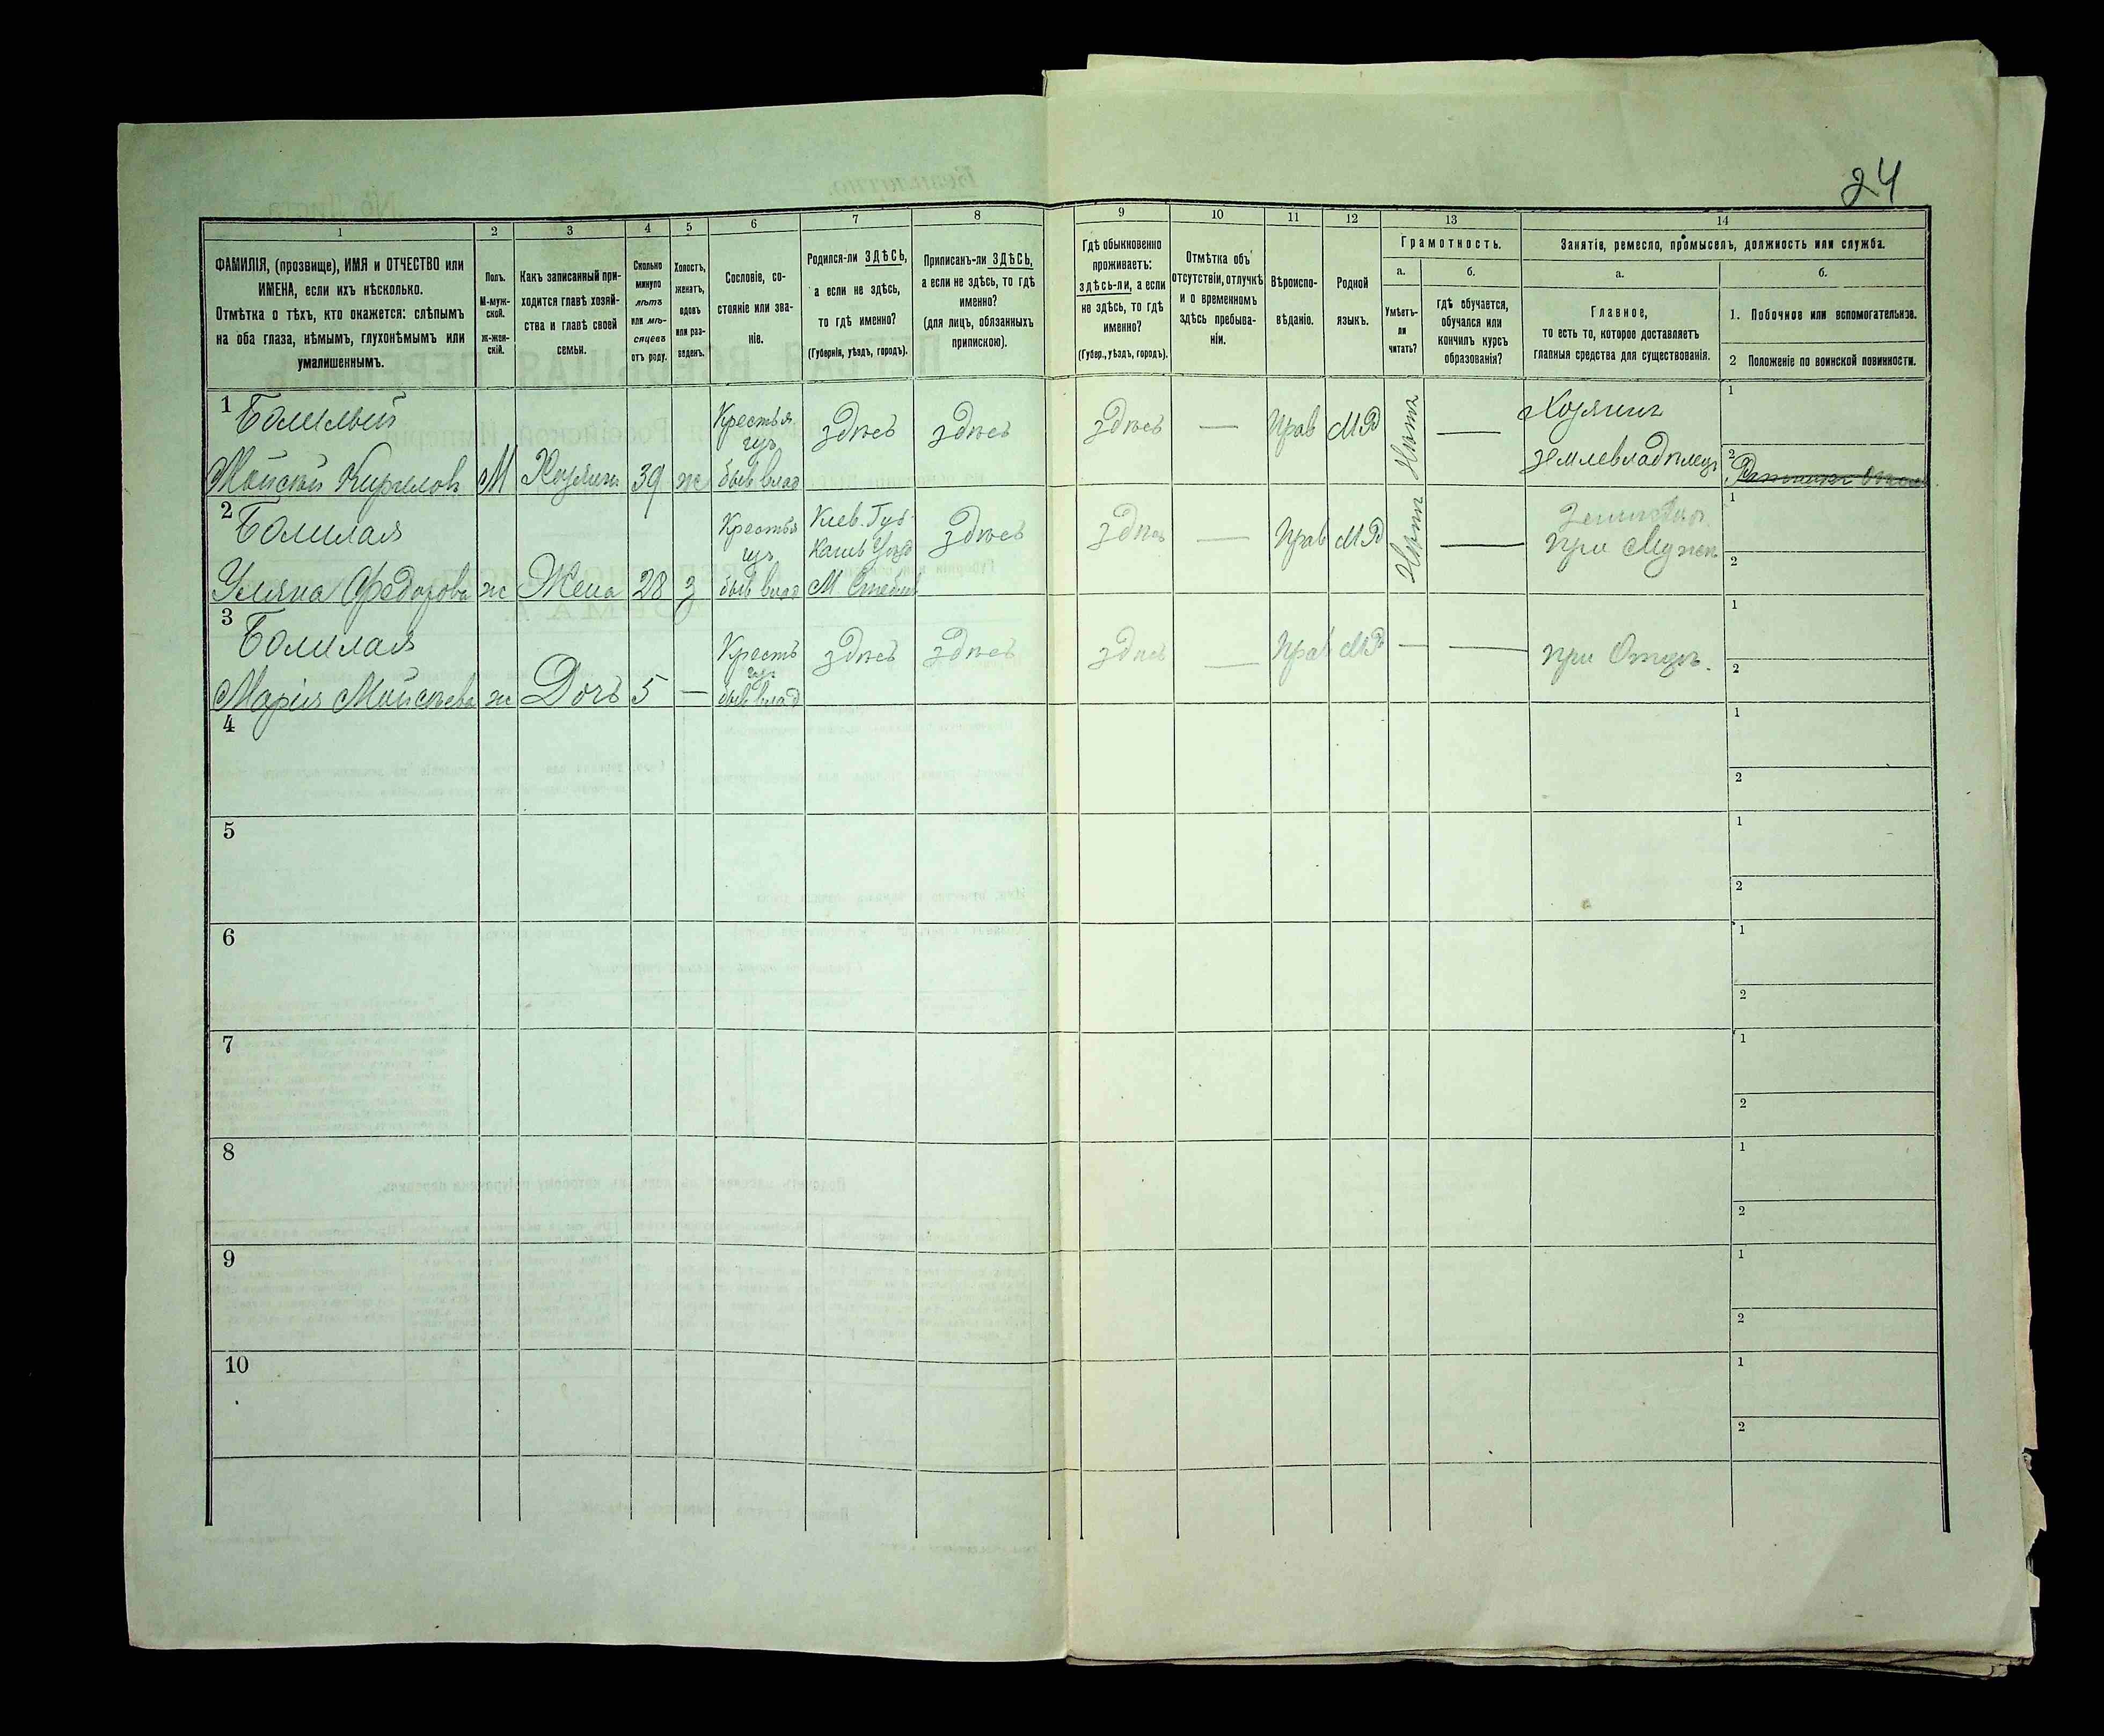 24
1
2
3
4
5
6
7
8
9
10
11
12
13
14
ФАМИЛІЯ, (прозвище), ИМЯ и ОТЧЕСТВО или
ИМЕНА, если ихъ нѣсколько.
Отмѣтка о тѣхъ, кто окажется: слѣпымъ
на оба глаза, нѣмымъ, глухонѣмымъ или
умалишеннымъ.
Полъ.
М-муж-
ской.
Ж-жен-
скій.
Какъ записанный при-
ходится главѣ хозяй-
ства и главѣ своей
семьи.
Сколько
минуло
лѣтъ
или мѣ-
сяцевъ
отъ роду.
Холостъ,
женатъ,
вдовъ
или раз-
веденъ.
Сословіе, со-
стояніе или зва-
ніе.
Родился-ли ЗДѢСЬ,
а если не здѣсь,
то гдѣ именно?
(Губернія, уѣздъ, городъ).
Приписанъ-ли ЗДѢСЬ,
а если не здѣсь, то гдѣ
именно?
(для лицъ, обязанныхъ
припискою).
Гдѣ обыкновенно
проживаетъ:
здѣсь-ли, а если
не здѣсь, то гдѣ
именно?
(Губер., уѣздъ, городъ).
Отмѣтка объ
отсутствіи, отлучкѣ
и о временномъ
здѣсь пребыва-
ніи.
Вѣроиспо-
вѣданіе.
Родной
языкъ.
Грамотность.
а.
Умѣетъ-
ли
читать?
б.
гдѣ обучается,
обучался или
кончилъ курсъ
образованія?
Занятіе, ремесло, промыселъ, должность или служба.
а.
Главное,
то есть то, которое доставляетъ
главныя средства для существованія.
б.
1. Побочное или вспомогательное.
2 Положеніе по воинской повинности.
1 Болилый
Мойсѣй Кириловъ М Хозяинъ 39 ж
Крестья
изъ
быв влад
здѣсь
здѣсь
здѣсь
—
Прав
МР
Нѣтъ
—
Хозяинъ
Землевладѣлецъ
1
2 Ратникъ
2 Болилая
Уляна Федорова ж Жена 28 з
Крестья
изъ
быв влад
Киев. Губ.
Канев Уѣзд
М. Стебл
здѣсь
здѣсь
—
Прав
МР
Нѣтъ
—
при Мужѣ
1
2
3 Болилая
Марія Мойсѣева ж Дочь 5 —
Кресть
изъ
быв влад
здѣсь
здѣсь
здѣсь
—
Прав
МР
—
—
при Отцѣ.
1
2
4
1
2
5
1
2
6
1
2
7
1
2
8
1
2
9
1
2
10
1
2